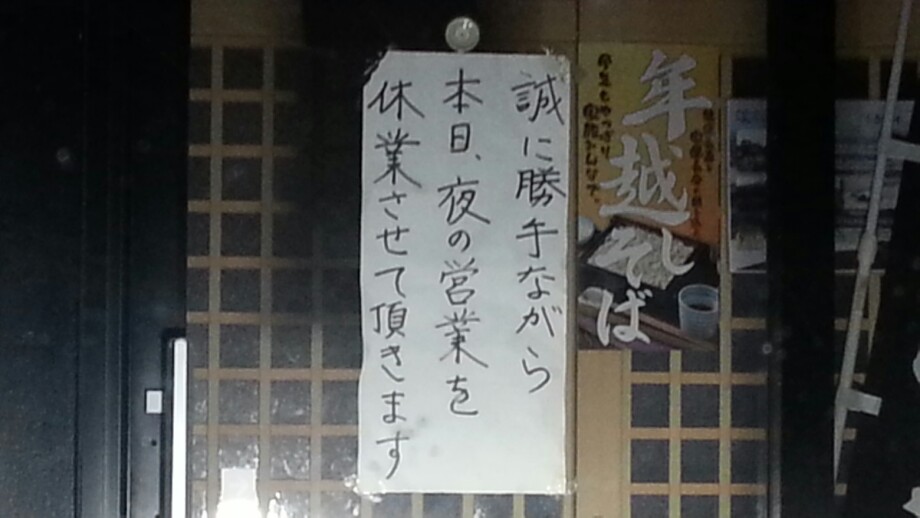 誠に勝手ながら
本日、夜の営業を
休業させて頂きます
年越しそば
今年もやっぱり
家族みんなで。